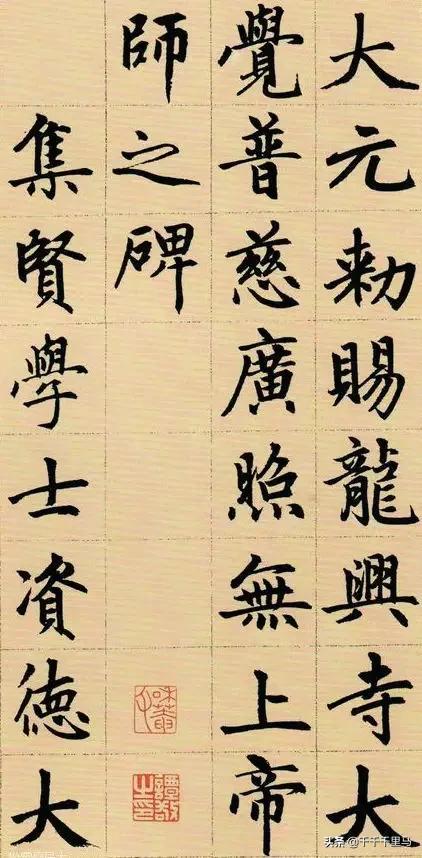 大元勑賜龍興寺大
覺普慈廣照無上帝
師之碑
集賢學士資德大
头条 @千千千里马